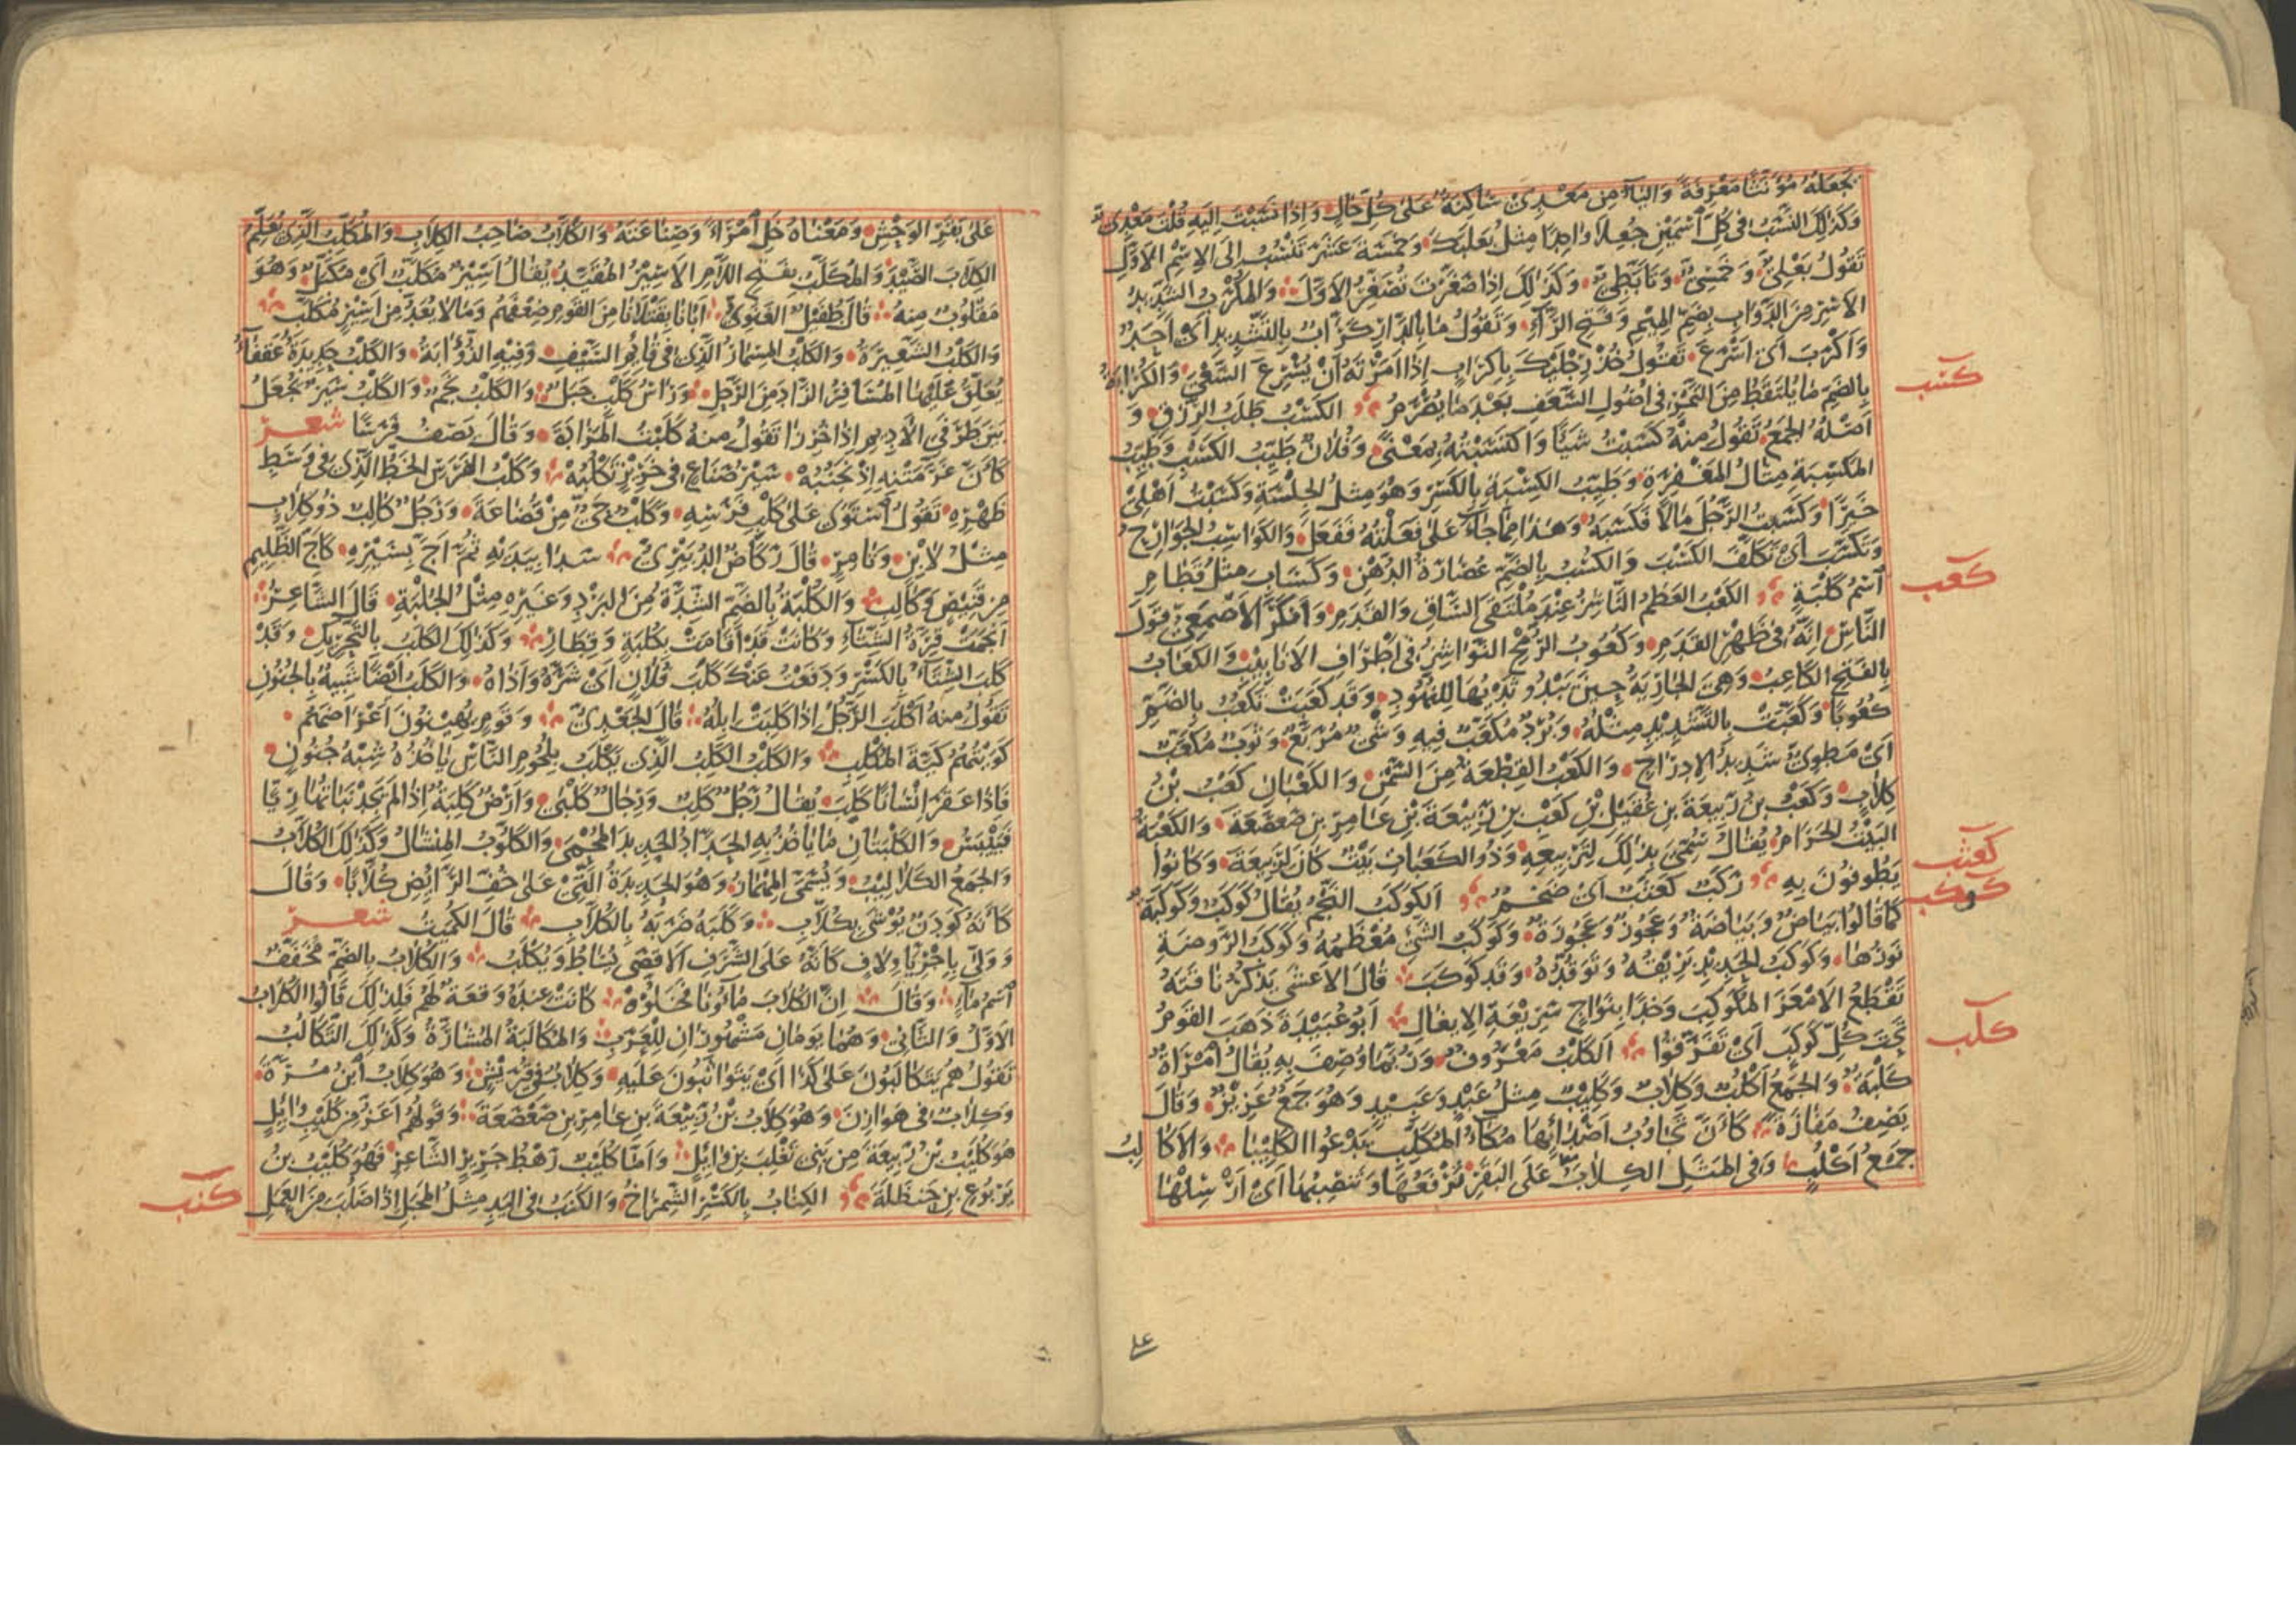 يَجْعَلُهُ مُؤَنَّثًا مَعْرِفَةً وَاليَاءُ مِن مَعْدِي سَاكِنَةٌ عَلىٰ كُلِّ حَالٍ وَاِذَا نَسَبْتَ اِلَيهِ قُلْتَ مَعْدِيّ
وَكَذٰلِكَ النَّسَبُ فى كُلِّ اسْمَيْنِ جُعِلَا وَاحِدًا مِثلُ بَعْلَبَكَّ وَخَمْسَةَ عَشَرَ تَنْسُبُ اِلَى الاِسْمِ الاَوَّلِ
تَقُولُ بَعْلِيٌّ وَخَمْسِيٌّ وَتَأَبَّطِيٌّ وَكَذٰلِكَ اِذَا صَغَّرْتَ تُصَغِّرُ الاَوَّلَ وَالمُكْرَبُ الشَّدِيدُ
الاَسْرِ مِنَ الدَّوَابِ بِضَمِّ المِيْمِ وَفَتحِ الرَّاءِ وَتَقُولُ مَا بِالدَّارِ كَرَّابٌ بِالتَّشْدِيدِ اَىْ اَحَدٌ
وَاَكْرَبَ اَىْ اَسْرَعَ تَقُولُ خُذْ رِجْلَيْكَ بِاِكرَابٍ اِذَا اَمَرْتَهُ اَنْ يُسْرِعَ السَّعْيَ وَالكُرَابَةُ
بِالضَّمِّ مَا يُلتَقَطُ مِنَ التَّمْرِ فى اُصُولِ السَّعَفِ بَعْدَ مَا يُصْرَمُ الكَسْبُ طَلَبُ الرِّزْقِ وَ
كسب
اَصْلُهُ الجَمْعُ تَقُولُ مِنْهُ كَسَبْتُ شَيْئًا وَاكْتَسَبْتُهُ بِمَعْنًى وَفُلَانٌ طَيِّبُ الكَسْبِ وَطَيِّبُ
المَكْسِبَةِ مِثَالُ المَغْفِرَةِ وَطَيِّبُ الكِسْبَةِ بِالكَسْرِ وَهُوَ مِثلُ الجِلْسَةِ وَكَسَبْتُ اَهْلِى
خَيْرًا وَكَسَبْتُ الرَّجُلَ مَالًا فَكَسَبَهُ وَهٰذَا مِمَّا جَاءَ عَلىٰ فَعَلْتُهُ فَفَعَلَ وَالكَوَاسِبُ الجَوَارِحُ
وَتَكَسَّبَ اَىْ تَكَلَّفَ الكَسْبَ وَالكُسْبُ بِالضَّمِّ عُصَارَةُ الدُّهْنِ وَكَسَابِ مِثلُ قَطَامِ
اسْمُ كَلْبَةٍ الكَعْبُ العَظْمُ النَّاشِزُ عِنْدَ مُلْتَقَى السَّاقِ وَالقَدَمِ وَاَنكَرَ الاَصْمَعِيُّ قَوْلَ
كعب
النَّاسِ اِنَّهُ فى ظَهْرِ القَدَمِ وَكُعُوبُ الرُّمْحِ النَّوَاشِزُ فى اَطْرَافِ الاَنَابِيْبِ وَالكَعَابُ
بِالفَتْحِ الكَاعِبُ وَهِيَ الجَارِيَةُ حِينَ يَبْدُو ثَدْيُهَا لِلنُّهُودِ وَقَد كَعَبَتْ تَكْعُبُ بِالضَّمِّ
كُعُوبًا وَكَعَّبَتْ بِالتَّشْدِيدِ مِثْلُهُ وَبُرْدٌ مُكَعَّبٌ فِيهِ وَشْىٌ مُرَبَّعٌ وَثَوْبٌ مُكَعَّبٌ
اَىْ مَطْوِيٌّ شَدِيدُ الاِدرَاجِ وَالكَعْبُ القِطْعَةُ مِنَ السَّمْنِ وَالكَعْبَانِ كَعْبُ بْنُ
كِلَابٍ وَكَعْبُ بْنُ رَبِيعَةَ بنِ عُقَيلِ بْنِ كَعْبِ بنِ رَبِيْعَةَ بْنِ عَامِرِ بنِ صَعْصَعَةَ وَالكَعْبَةُ
البَيْتُ الحَرَامُ يُقَالُ سُمِّيَ بِذٰلِكَ لِتَرْبِيعِهِ وَذُو الكَعَبَاتِ بَيْتٌ كَانَ لِرَبِيعَةَ وَكَانُوا
يَطُوفُونَ بِهِ رَكَبٌ كَعْثَبٌ اَىْ ضَخْمٌ الكَوكَبُ النَّجْمُ يُقَالُ كَوكَبٌ وَكَوكَبَةٌ
كعثب
كوكب
كَمَا قَالُوا بَيَاضٌ وَبَيَاضَةٌ وَعَجُوزٌ وَعَجُوزَةٌ وَكَوكَبُ الشَّيْ مُعْظَمُهُ وَكَوكَبُ الرَّوضَةِ
نَوْرُهَا وَكَوكَبُ الحَدِيْدِ بَرِيْقُهُ وَتَوَقُّدُهُ وَقَد كَوكَبَ قَالَ الاَعْشٰى يَذْكُرُ نَاقَتَهُ
تَقْطَعُ الاَمْعَزَ المُكَوكِبَ وَخْدًا بِنَوَاجٍ سَرِيْعَةِ الاِيغَالِ اَبُو عُبَيْدَةَ ذَهَبَ القَومُ
تَحْتَ كُلِّ كَوكَبٍ اَىْ تَفَرَّقُوا الكَلْبُ مَعْرُوفٌ وَرُبَّمَا وُصِفَ بِهِ يُقَالُ امْرَاَةٌ
كلب
كَلْبَةٌ وَالجَمْعُ اَكْلُبٌ وَكِلَابٌ وَكَلِيْبٌ مِثلُ عَبْدٍ وَعَبِيْدٍ وَهُوَ جَمْعٌ عَزِيْزٌ وَقَالَ
يَصِفُ مَفَازَةً كَاَنَّ تَجَاوُبَ اَصْدَائِهَا مُكَاءُ المُكَلِّبِ يَدْعُوا الكَلِيْبَا وَالاَكَالِبُ
جَمْعُ اَكْلُبٍ وَفى المَثَلِ الكِلَابُ عَلَى البَقَرِ تَرْفَعُهَا وَتَنْصِبُهَا اَىْ اَرْسِلْهَا
عَلىٰ بَقَرِ الوَحْشِ وَمَعْنَاهُ خَلِّ امْرَاً وَصِنَاعَتَهُ وَالكَلَّابُ صَاحِبُ الكِلَابِ وَالمُكَلِّبُ الَّذِى يُعَلِّمُ
الكِلَابَ الصَّيْدَ وَالمُكَلَّبُ بِفَتحِ اللَّامِ الاَسِيْرُ المُقَيَّدُ يُقَالُ اَسِيْرٌ مُكَلَّبٌ اَىْ مُكَبَّلٌ وَهُوَ
مَقْلُوبٌ مِنهُ قَالَ طُفَيْلٌ الغَنَوِيُّ اَبَانَا بِقَتْلَانَا مِنَ القَومِ ضِعْفَهُمْ وَمَا لَا يُعَدُّ مِنْ اَسِيْرٍ مُكَلَّبِ
وَالكَلْبُ الشَّعِيرَةُ وَالكَلْبُ المِسْمَارُ الَّذِى فى قَائِمِ السَّيْفِ وَفِيْهِ الذُّؤَابَةُ وَالكَلْبُ حَدِيدَةٌ عَقْفَاءُ
يُعَلِّقُ عَلَيْهَا المُسَافِرُ الزَّادَ مِنَ الرَّحْلِ وَرَأسُ كَلْبٍ جَبَلٌ وَالكَلْبُ نَجْمٌ وَالكَلْبُ سَيْرٌ يُجْعَلُ
بَيْنَ طَرَفَيِ الاَدِيمِ اِذَا خُرِزَا تَقُولُ مِنهُ كَلَبْتُ المَزَادَةَ وَقَالَ يَصِفُ فَرَسًا شعر
كَاَنَّ غَرَّ مَتْنِهِ اِذْ نَجْنُبُهْ سَيْرُ صَنَاعٍ فى خَرِيْزٍ تَكْلُبُهْ وَكَلْبُ الفَرَسِ الخَطُّ الَّذِى فى وَسَطِ
ظَهْرِهِ تَقُولُ اسْتَوٰى عَلىٰ كَلْبِ فَرَسِهِ وَكَلْبٌ حَيٌّ مِنْ قُضَاعَةَ وَرَجُلٌ كَالِبٌ ذُو كِلَابٍ
مِثلُ لَابِنٍ وَتَامِرٍ قَالَ رَكَّاضٌ الدُّبَيْرِيُّ سَدَا بِيَدَيْهِ ثُمَّ اَجَّ بِسَيْرِهِ كَاَجِّ الظَّلِيمِ
مِن قَنِيْصٍ وَكَالِبِ وَالكُلْبَةُ بِالضَّمِّ الشِّدَّةُ مِنَ البَرْدِ وَغَيْرِهِ مِثْلُ الجُلْبَةِ قَالَ الشَّاعِرُ
اَنْجَمَتْ قِرَّةُ الشِّتَاءِ وَكَانَتْ قَد اَقَامَتْ بِكُلْبَةٍ وَقِطَارِ وَكَذٰلِكَ الكَلَبُ بِالتَّحْرِيْكِ وَقَدْ
كَلِبَ الشِّتَاءُ بِالكَسْرِ وَدَفَعْتُ عَنْكَ كَلَبَ فُلَانٍ اَىْ شَرَّهُ وَاَذَاهُ وَالكَلَبُ اَيْضًا شَبِيهٌ بِالجُنُونِ
تَقُولُ مِنهُ اَكْلَبَ الرَّجُلُ اِذَا كَلِبَتْ اِبِلُهُ قَالَ الجَعْدِيُّ وَقَومٍ يُهِيْنُونَ اَعْرَاضَهُمْ
كَوَيْتُهُمُ كَيَّةَ المُكْلِبِ وَالكَلْبُ الكَلِبُ الَّذِى يَكْلَبُ بِلُحُومِ النَّاسِ يَاخُذُهُ شِبْهُ جُنُونٍ
فَاِذَا عَقَرَ اِنْسَانًا كَلِبَ يُقَالُ رَجُلٌ كَلِبٌ وَرِجَالٌ كَلْبٰى وَاَرْضٌ كَلِبَةٌ اِذَا لَمْ يَجِدْ نَبَاتُهَا رِيًّا
فَيَيْبَسُ وَالكَلْبَتَانِ مَا يَاخُذُ بِهِ الحَدَّادُ الحَدِيدَ المُحْمٰى وَالكَلُّوبُ المِنْشَالُ وَكَذٰلِكَ الكُلَّابُ
وَالجَمْعُ الكَلَالِيْبُ وَيُسَمَّى المِهْمَازُ وَهُوَ الحَدِيدَةُ الَّتِىْ عَلىٰ خُفِّ الرَّائِضِ كُلَّابًا وَقَالَ
كَاَنَّهُ كَودَنٌ يُوْشٰى بِكُلَّابِ وَكَلَبَهُ ضَرَبَهُ بِالكُلَّابِ قَالَ الكُمَيْتُ شعر
وَوَلّٰى بِاِجْرِيَّا وِلَافٍ كَاَنَّهُ عَلَى الشَّرَفِ الاَقْصٰى يُسَاطُ وَيُكْلَبُ وَالكُلَابُ بِالضَّمِّ مُخَفَّفٌ
اسْمُ مَاءٍ وَقَالَ اِنَّ الكُلَابَ مَاؤُنَا فَخَلُّوْهْ كَانَتْ عِنْدَهُ وَقْعَةٌ لَهُمْ فَلِذٰلِكَ قَالُوا الكُلَابُ
الاَوَّلُ وَالثَّانِى وَهُمَا يَومَانِ مَشْهُورَانِ لِلعَرَبِ وَالمُكَالَبَةُ المُشَارَّةُ وَكَذٰلِكَ التَّكَالُبُ
تَقُولُ هُمْ يَتَكَالَبُونَ عَلىٰ كَذَا اَىْ يَتَوَاثَبُونَ عَلَيهِ وَكِلَابٌ فى قُرَيْشٍ وَهُوَ كِلَابُ ابْنُ مُرَّةَ
وَكِلَابٌ فى هَوَازِنَ وَهُوَ كِلَابُ بْنُ رَبِيْعَةَ بنِ عَامِرِ بنِ صَعْصَعَةَ وَقَولُهُمْ اَعَزُّ مِن كُلَيْبِ وَائِلٍ
هُوَ كُلَيْبُ بْنُ رَبِيعَةَ مِن بَنِى تَغْلِبَ بنِ وَائِلٍ وَاَمَّا كُلَيْبٌ رَهْطُ جَرِيْرٍ الشَّاعِرِ فَهُوَ كُلَيْبُ بنُ
يَرْبُوعِ بنِ حَنظَلَةَ الكِنَابُ بِالكَسْرِ الشِّمْرَاخُ وَالكَنَبُ فى اليَدِ مِثلُ المَجَلِ اِذَا صَلُبَتْ مِنَ العَمَلِ
كنب